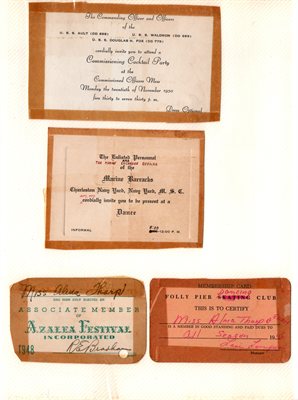 The Commanding Officer and Officers
of the
U. S. S. AULT (DD 698) U. S. S. WALDRON (DD 699)
U. S. S. DOUGLAS H. FOX (DD 779)
cordially invite you to attend a
Commissioning Cocktail Party
at the
Commissioned Officers Mess
Monday the twentieth of November 1950
five thirty to seven thirty p. m.
Dress Optional
The Enlisted Personnel
of the
Marine Barracks
Charleston Navy Yard, Navy Yard, S. C.
cordially invite you to be present at a
Dance
INFORMAL
12:00 P. M.
Miss Alma Tharp
HAS BEEN DULY ELECTED AN
ASSOCIATE MEMBER
OF
AZALEA FESTIVAL
INCORPORATED
1948
MEMBERSHIP CARD
Dancing
FOLLY PIER SKATING CLUB
THIS IS TO CERTIFY
Miss Alma Tharp
IS A MEMBER IN GOOD STANDING AND PAID DUES TO
All Season